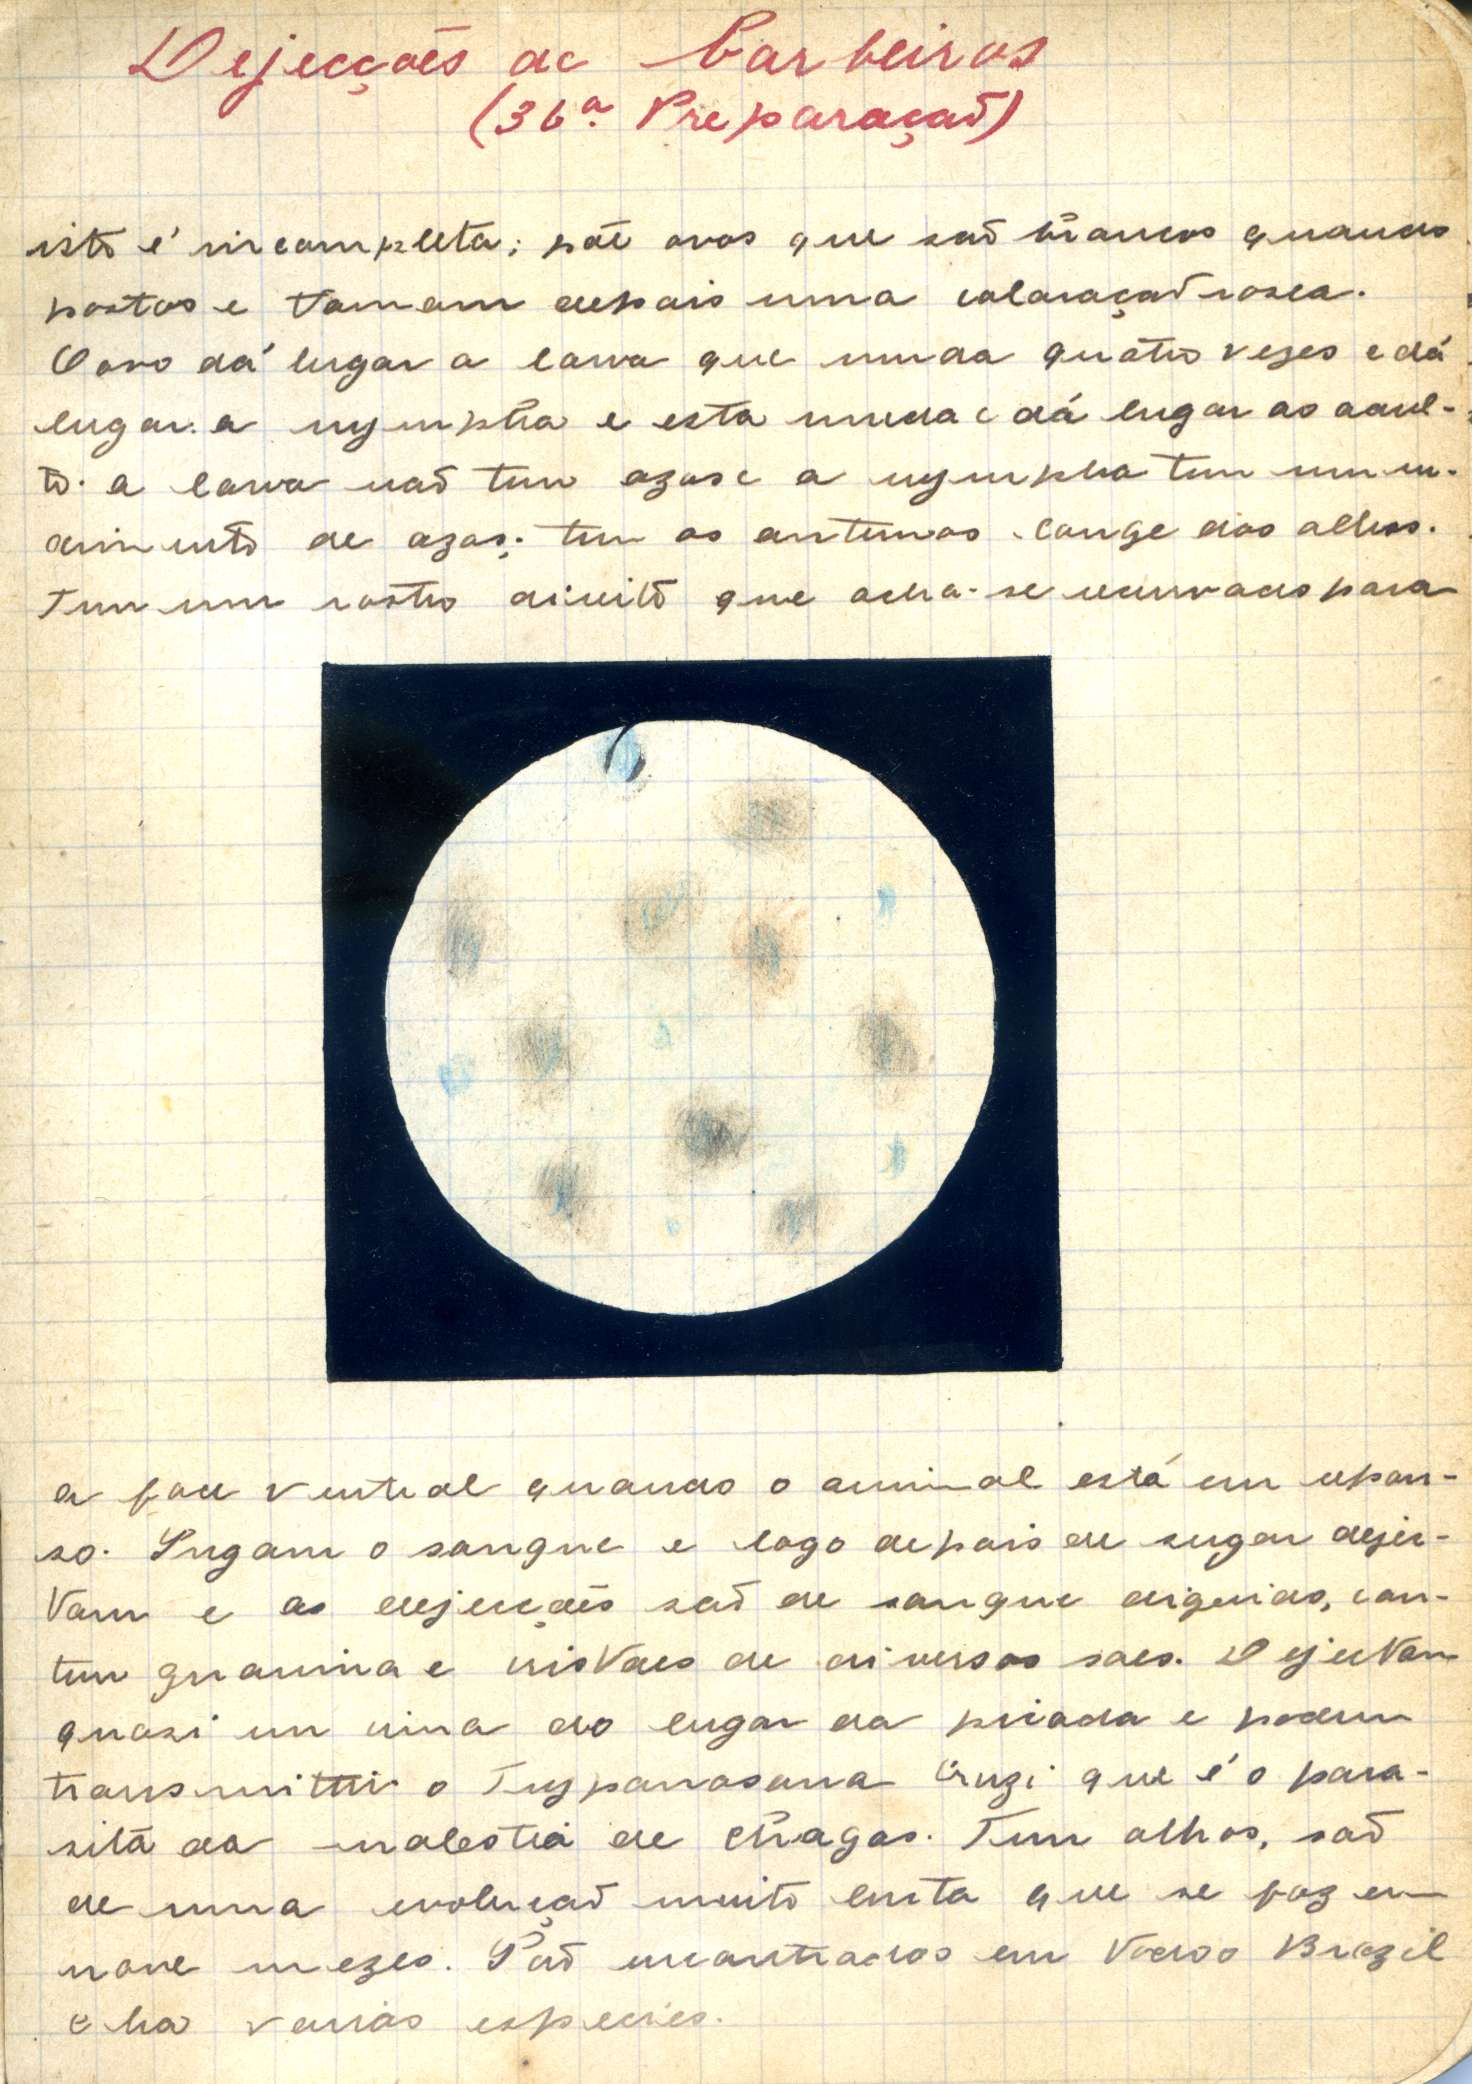 Dejecções de barbeiros
(36ª Preparação)
isto é incompleta; põe ovos que são brancos quando
postos e tomam depois uma coloração rosea.
O ovo dá lugar a larva que muda quatro vezes e dá
lugar a nympha e esta muda e dá lugar ao adul-
to. a larva não tem azas e a nympha tem um ru-
dimento de azas; tem as antenas longe dos olhos.
Tem um rostro direito que acha-se recurvado para
a face ventral quando o animal está em repou-
so. Sugam o sangue e logo depois de sugar dejec-
tam e as dejecções são de sangue digerido, con-
tem guanina e cristaes de diversos saes. Dejectam
quasi em cima do lugar da picada e podem
transmittir o Trypanosoma Cruzi que é o para-
sita da molestia de Chagas. Tem olhos, são
de uma evolução muito lenta que se faz em
nove mezes. São encontrados em todo o Brazil
e ha varias especies.